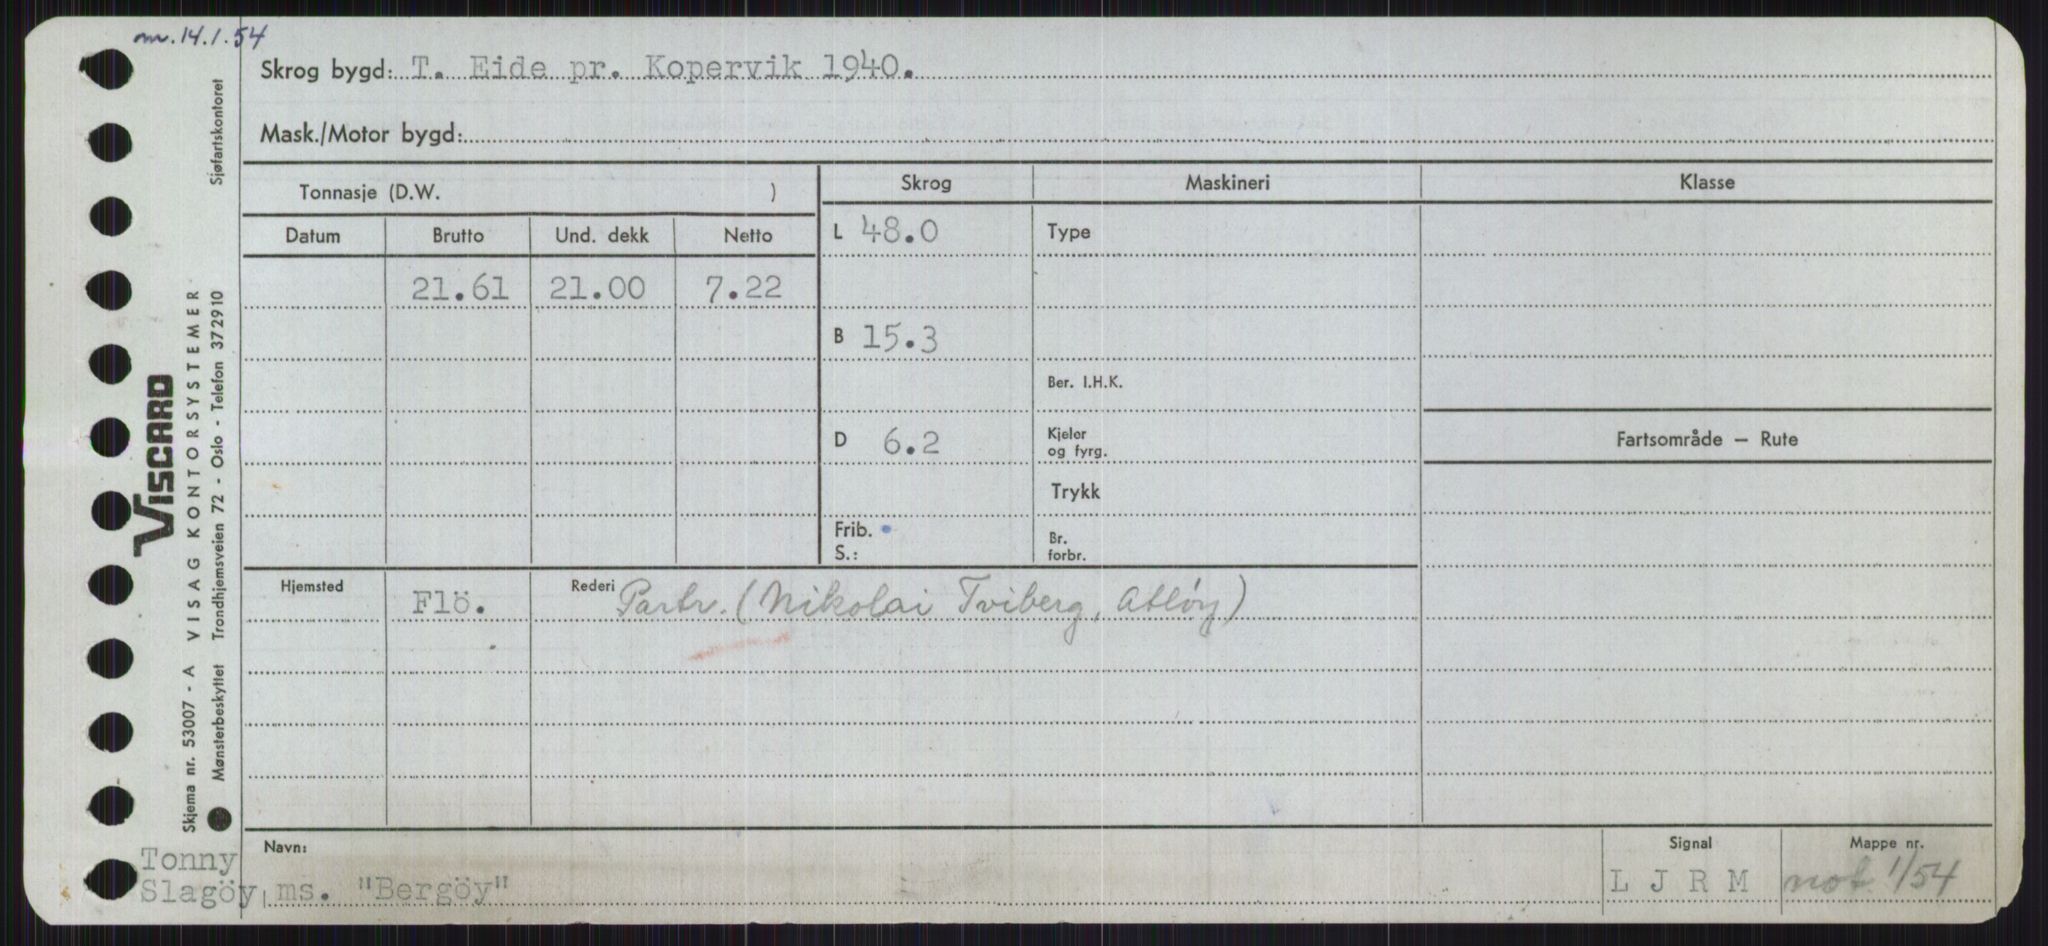 m. 14.1.54
Skrog bygd: T. Eide pr. Kopervik 1940.
Mask./Motor bygd:
Tonnasje (D.W. )
Skrog Maskineri Klasse
Datum Brutto Und. dekk Netto
L 48.0 Type
21.61 21.00 7.22
B 15.3
Ber. I.H.K.
D 6.2 Kjeler og fyrg.
Fartsområde – Rute
Trykk
Frib. S.:
Br. forbr.
Hjemsted Flö. Rederi Partr. (Nikolai Tviberg, Atløy)
Navn: Signal Mappe nr.
Tonny
Slagöy ms. "Bergöy" L J R M not 1/54
Sjøfartskontoret
VISCARD
VISAG KONTORSYSTEMER
Skjema nr. 53007 - A
Mønsterbeskyttet Trondhjemsveien 72 - Oslo - Telefon 372910